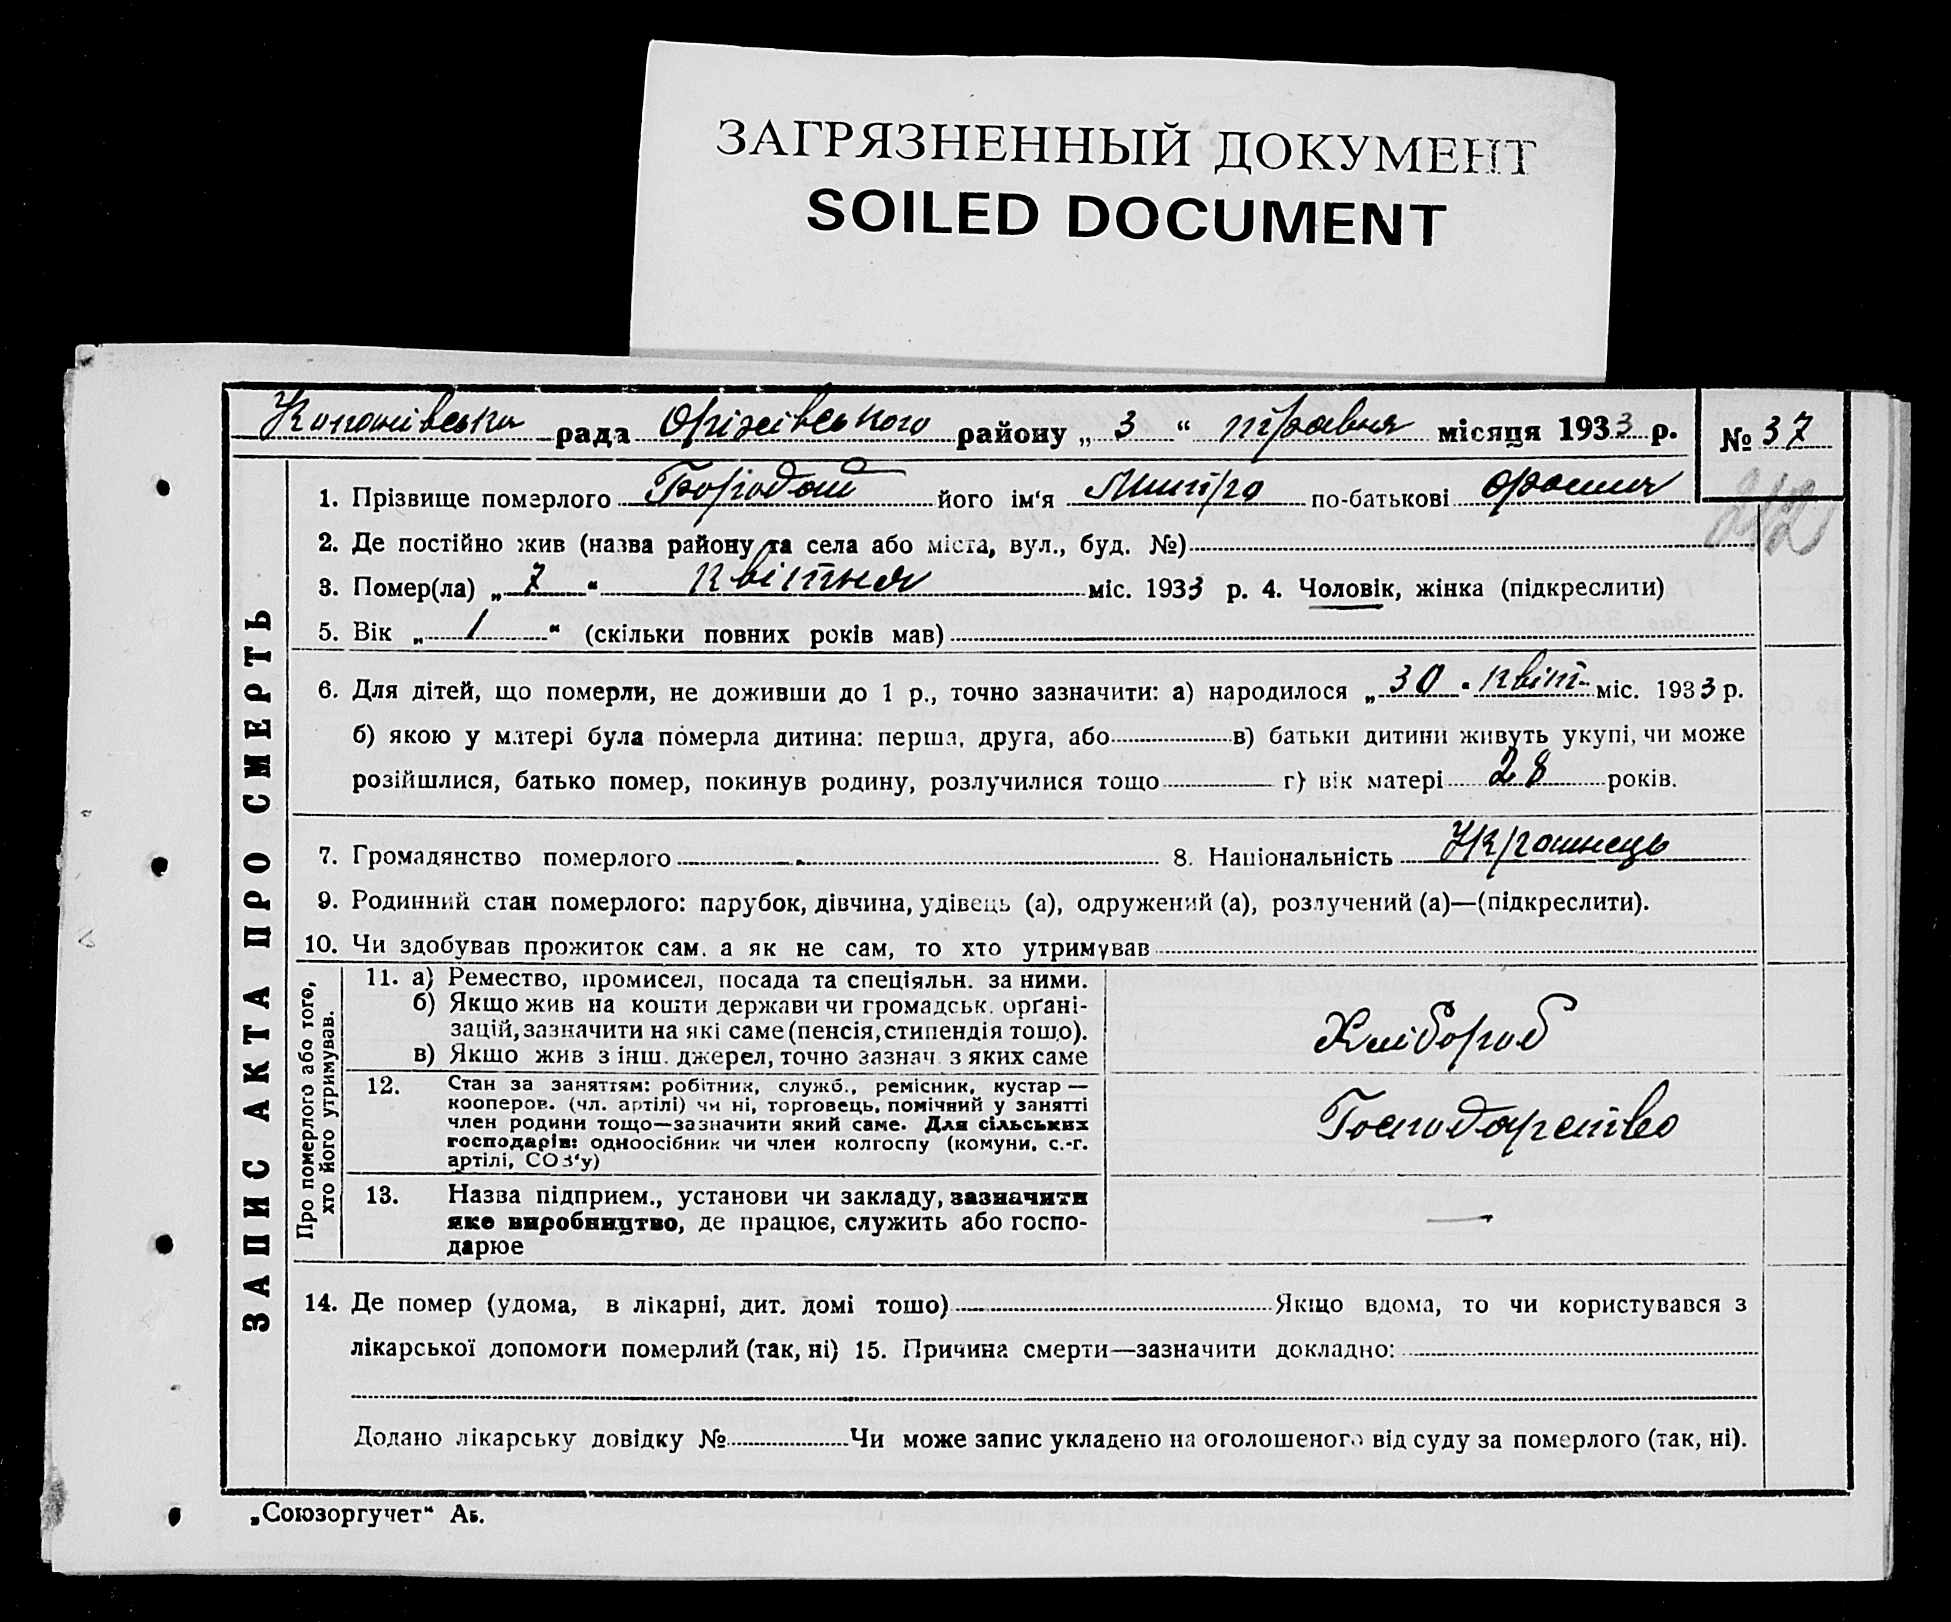 ЗАГРЯЗНЕННЫЙ ДОКУМЕНТ
SOILED DOCUMENT
рада району „ 3 “ травня місяця 1933 р. № 37
1. Прізвище померлого його ім‘я по-батькові
212
2. Де постійно жив (назва району та села або міста, вул., буд. №)
3. Помер(ла) „ 7 “ квітня міс. 1933 р. 4. Чоловік, жінка (підкреслити)
5. Вік „ 1 “ (скільки повних років мав)
6. Для дітей, що померли, не доживши до 1 р., точно зазначити: а) народилося „ 30 “ квіт міс. 1933 р.
б) якою у матері була померла дитина: перша, друга, або в) батьки дитини живуть укупі, чи може
розійшлися, батько помер, покинув родину, розлучилися тощо г) вік матері 28 років.
7. Громадянство померлого 8. Національність Українець
9. Родинний стан померлого: парубок, дівчина, удівець (а), одружений (а), розлучений (а)—(підкреслити).
10. Чи здобував прожиток сам, а як не сам, то хто утримував
ЗАПИС АКТА ПРО СМЕРТЬ
Про померлого або того,
хто його утримував.
11. а) Ремество, промисел, посада та спеціяльн. за ними.
б) Якщо жив на кошти держави чи громадськ. орґані-
зацій, зазначити на які саме (пенсія, стипендія тощо).
в) Якщо жив з інш. джерел, точно зазнач. з яких саме
Хлібороб
12. Стан за заняттям: робітник, служб., ремісник, кустар —
кооперов. (чл. артілі) чи ні, торговець, помічний у занятті
член родини тощо—зазначити який саме. Для сільських
господарів: одноосібник чи член колгоспу (комуни, с.-г.
артілі, СОЗ‘у)
Господарство
13. Назва підприєм., установи чи закладу, зазначити
яке виробництво, де працює, служить або госпо-
дарює
—
14. Де помер (удома, в лікарні, дит. домі тощо) Якщо вдома, то чи користувався з
лікарської допомоги померлий (так, ні) 15. Причина смерти—зазначити докладно:
Додано лікарську довідку № Чи може запис укладено на оголошеного від суду за померлого (так, ні).
„Союзоргучет“ Аб.